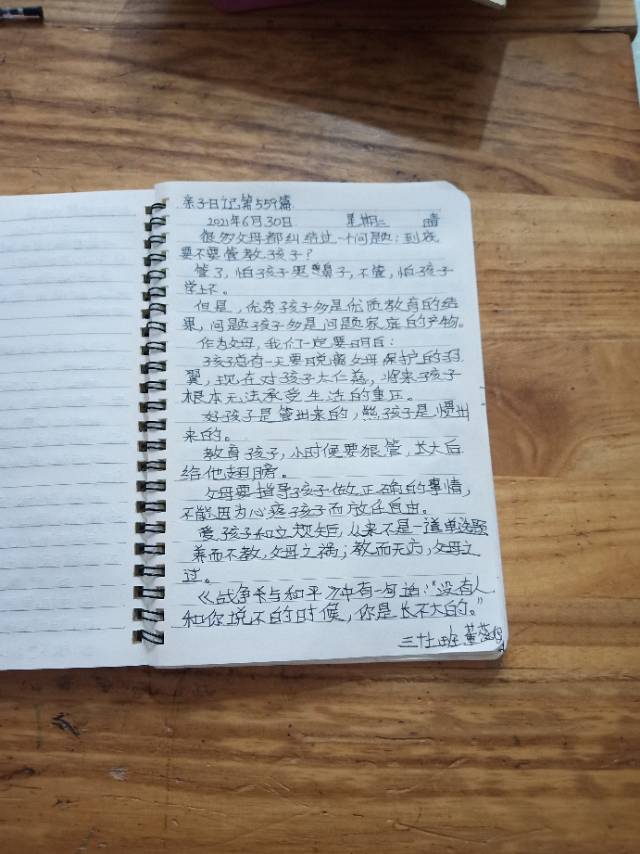 亲子日记第559篇
2021年6月30日 星期三 晴
很多父母都纠结过一个问题:到底
要不要管教孩子?
管了,怕孩子更 鼻子,不管,怕孩子
学坏。
但是,优秀孩子多是优质教育的结
果,问题孩子多是问题家庭的产物。
作为父母,我们一定要明白:
孩子总有一天要脱离父母保护的羽
翼,现在对孩子太仁慈,将来孩子
根本无法承受生活的重压。
好孩子是管出来的,熊孩子是惯出
来的。
教育孩子,小时便要狠管,长大后
给他翅膀。
父母要指导孩子做正确的事情,
不能因为心疼孩子而放任自由。
爱孩子和立规矩,从来不是一道单选题
养而不教,父母之祸;教而无方,父母之
过。
《战争与和平》中有一句话:"没有人
和你说不的时候,你是长不大的。"
三十 班 董